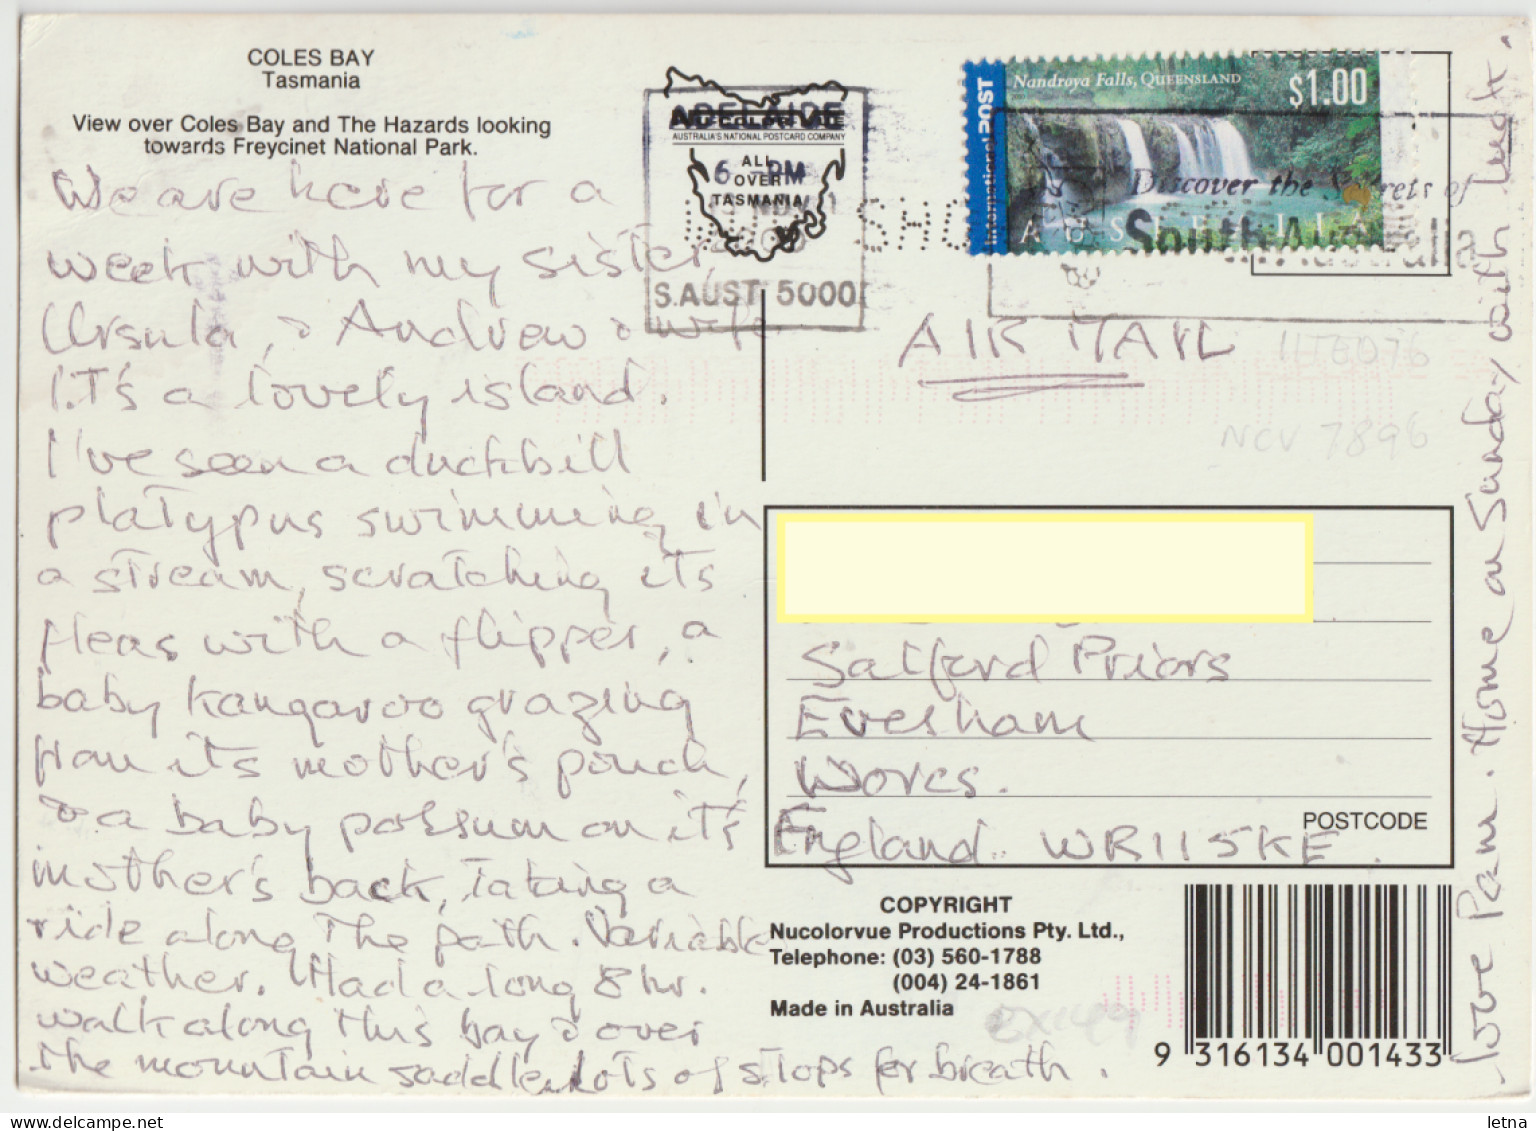 COLES BAY
Tasmania
View over Coles Bay and The Hazards looking
towards Freycinet National Park.
We are here for a
week with my sister,
Ursula, & Andrew & wife
I.T's a lovely island.
I've seen a duckbill
platypus swimming in
a stream, scratching its
fleas with a flipper, a
baby kangaroo grazing
from its mother's pouch,
& a baby possum on it's
mother's back, taking a
ride along the path. Variable
weather. Had a long 8 hr.
walk along this bay & over
the mountain saddle lots of stops for breath.
Love Pam. Home on Sunday with luck.
ADELAIDE
AUSTRALIA'S NATIONAL POSTCARD COMPANY
ALL
OVER
TASMANIA
6 - PM
S.AUST 5000
International POST
Nandroya Falls, QUEENSLAND
$1.00
AUSTRALIA
Discover the Secrets of
South Australia
AIR MAIL
NCV 7896
Salford Priors
Evesham
Worcs.
England. WR11 5KE.
POSTCODE
COPYRIGHT
Nucolorvue Productions Pty. Ltd.,
Telephone: (03) 560-1788
(004) 24-1861
Made in Australia
9 316134 001433
letna
www.delcampe.net